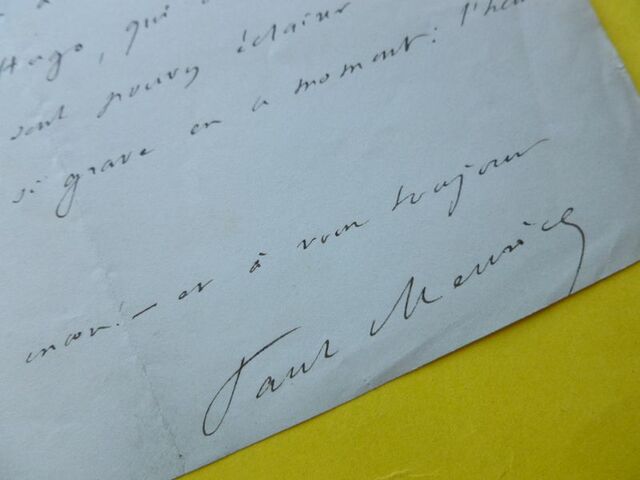 Hugo, qui
sont pouvoir éclairer
si grave en ce moment : l'heu
encor ! – et à vous toujours
Paul Meurice